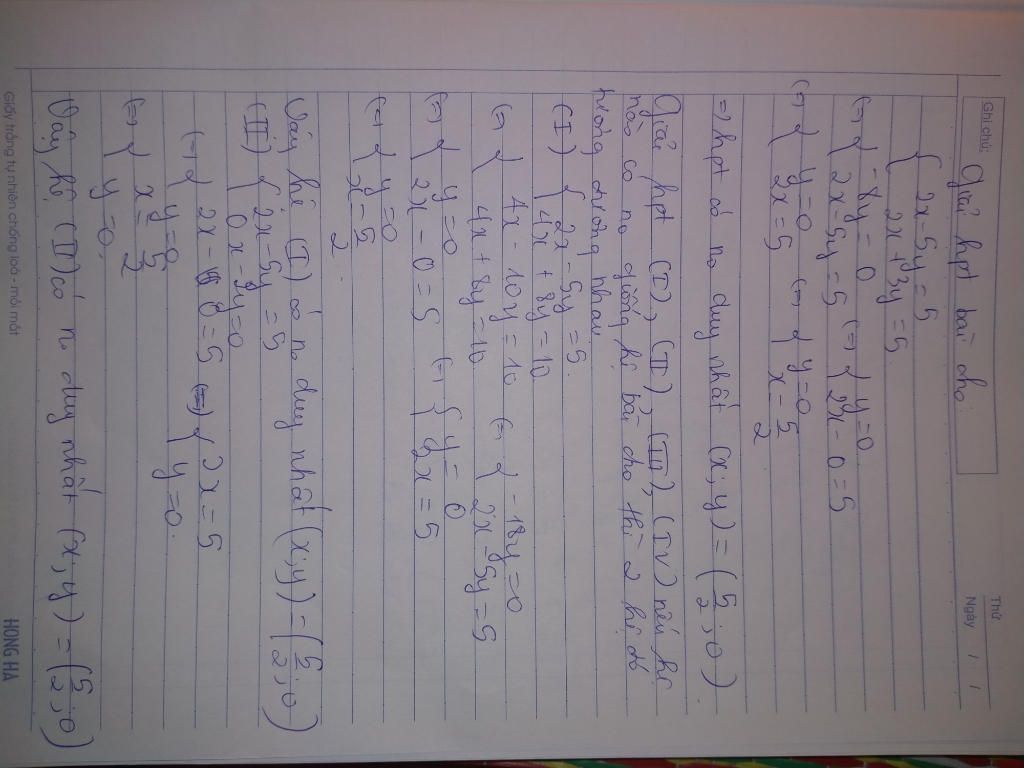 Ghi chú:
Thứ
Ngày / /
Giải hpt bài cho
{ 2x - 5y = 5
2x + 3y = 5
(=) { -8y = 0 (=) { y = 0
2x - 5y = 5 2x - 0 = 5
(=) { y = 0 (=) { y = 0
2x = 5 x = 5/2
=) hpt có no duy nhất (x; y) = (5/2; 0)
Giải hpt (I), (II), (III), (IV) nếu hệ
nào có no giống hệ bài cho thì 2 hệ đó
tương đương nhau
(I) { 2x - 5y = 5
4x + 8y = 10
(=) { 4x - 10y = 10 (=) { -18y = 0
4x + 8y = 10 2x - 5y = 5
(=) { y = 0 (=) { y = 0
2x - 0 = 5 2x = 5
(=) { y = 0
x = 5/2
Vậy hệ (I) có no duy nhất (x; y) = (5/2; 0)
(II) { 2x - 5y = 5
0x - 8y = 0
(=) { 2x - 0 = 5 (=) { 2x = 5
y = 0 y = 0
(=) { x = 5/2
y = 0
Vậy hệ (II) có no duy nhất (x; y) = (5/2; 0)
Giấy trắng tự nhiên chống loá - mỏi mắt
HONG HA